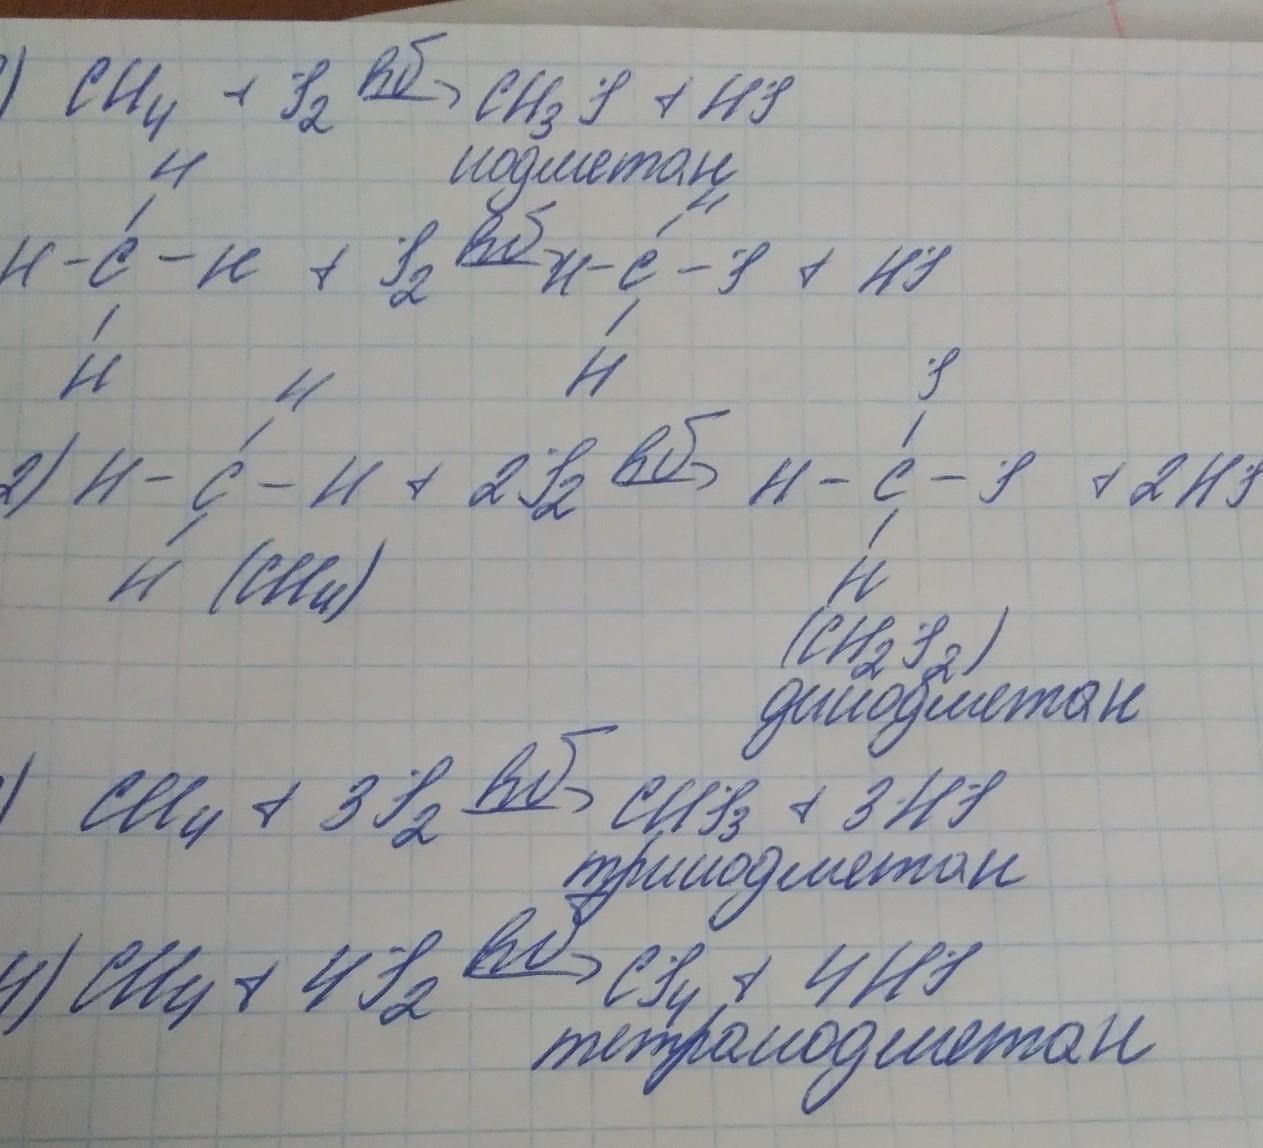 ) CH4 + I2 hν→ CH3I + HI
иодметан
H
H
H-C-H + I2 hν→ H-C-I + HI
H
H
H
I
2) H-C-H + 2I2 hν→ H-C-I + 2HI
H (CH4)
H
(CH2I2)
дииодметан
) CH4 + 3I2 hν→ CHI3 + 3HI
трииодметан
4) CH4 + 4I2 hν→ CI4 + 4HI
тетраиодметан